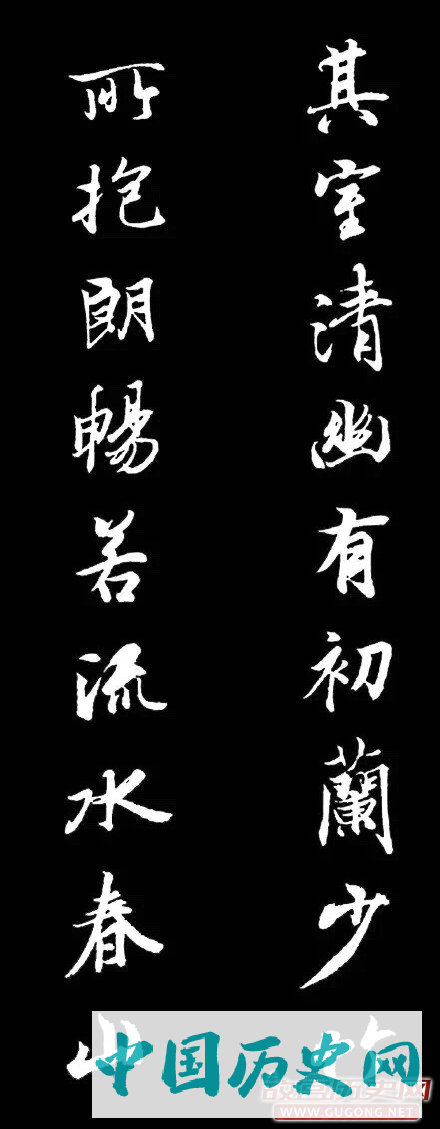 其室清幽有初蘭少
所抱朗暢若流水春山
中国历史网
WWW.GUGONG.NET